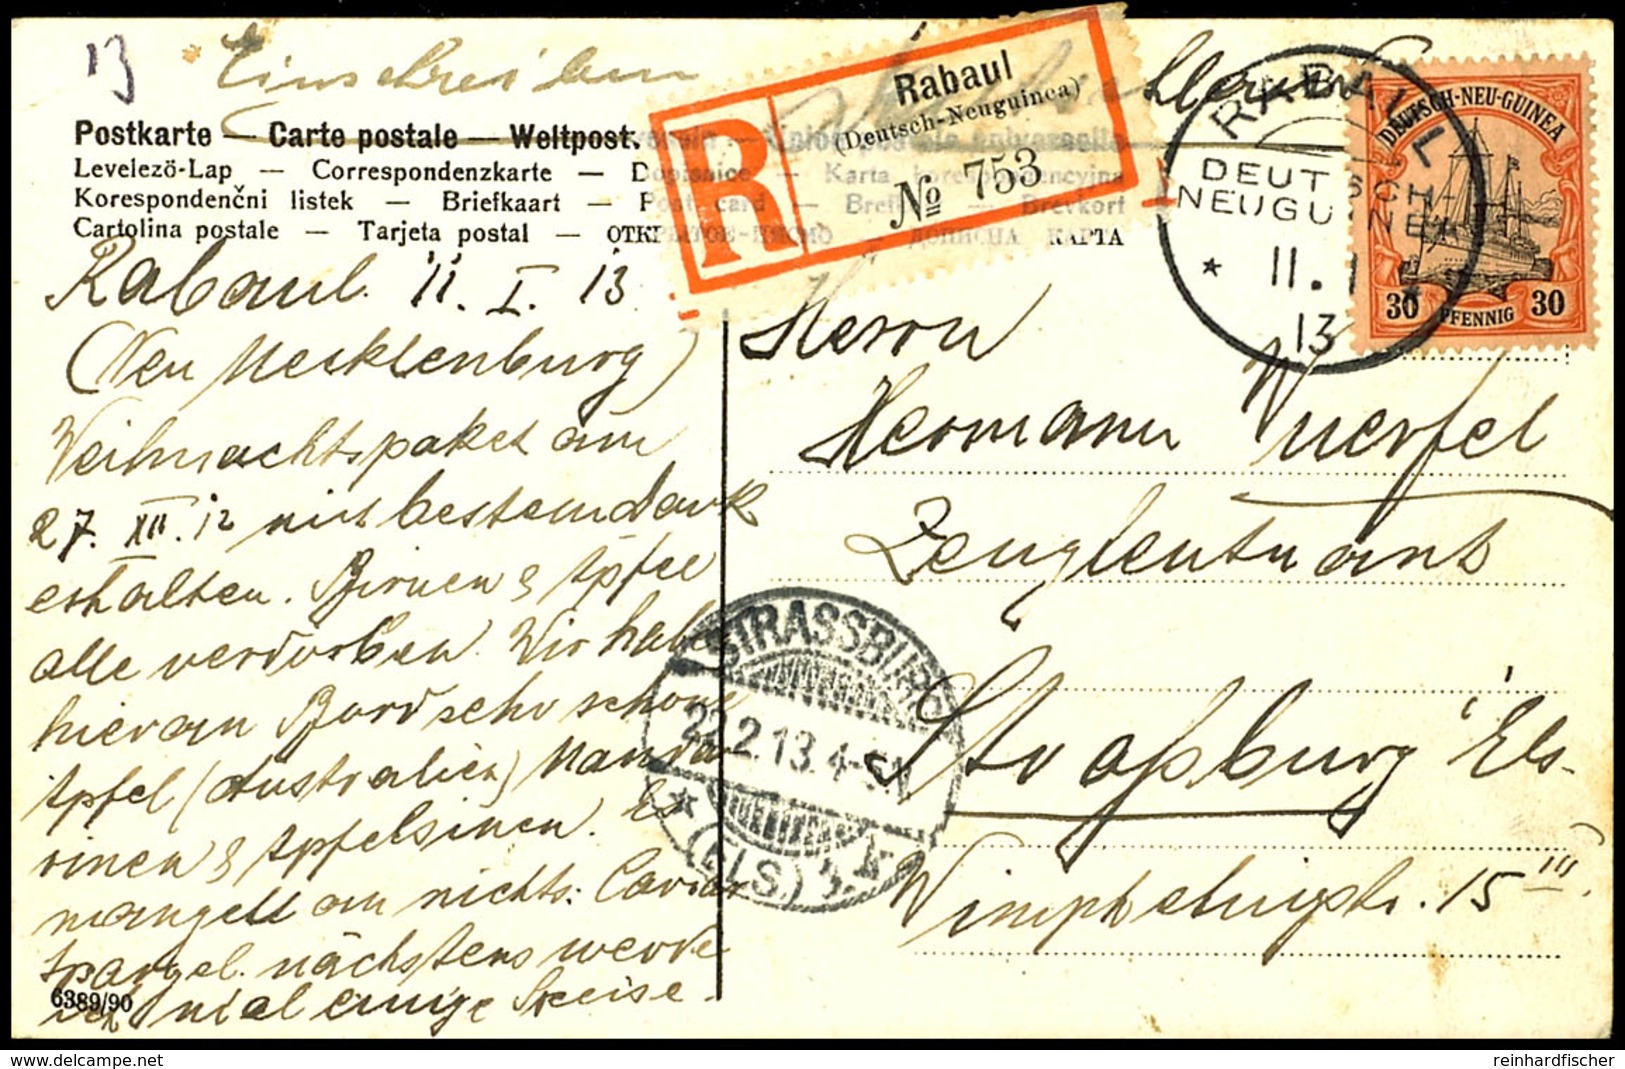 13
Einschreiben
Postkarte — Carte postale — Weltpostverein — Union postale universelle
Levelező-Lap — Correspondenzkarte — Dopisnice — Karta korespondencyjna
Korespondenční listek — Briefkaart — Post card — Brefkort — Brevkort
Cartolina postale — Tarjeta postal — ОТКРЫТОЕ-ПИСМО — ДОПИСНА КАРТА
R
Rabaul
(Deutsch-Neuguinea)
№ 753
RABAUL
DEUTSCH-
NEUGUINEA
* 11.1 *
13
DEUTSCH-NEU-GUINEA
30 PFENNIG 30
Rabaul 11. I. 13
(Neu Mecklenburg)
Weihnachtspaket am
27. XII. 12 mit bestem Dank
erhalten. Birnen & Äpfel
alle verdorben. Wir haben
hier am Bord sehr schöne
Äpfel (Australien) Manda-
rinen & Apfelsinen. Es
mangelt an nichts: Caviar
Spargel. nächstens werde
ich mal einige Speise-
6389/90
Herrn
Hermann Wuerfel
Zeugleutnant
Straßburg Els.
Wimphelingstr. 15 III
STRASSBURG
22.2.13. 4-5N
* (ELS.)
delcampe.net
reinhardfischer